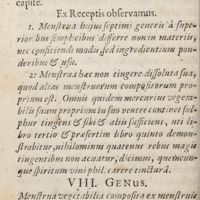 capite.
Ex Receptis observamus.
1. Menstrua hujus septimi generis à superio-
rioribus simplicibus differre non in materiis,
nec conficiendi modis, sed ingredientium pon-
deribus & usu.
2. Menstrua hæc non tingere dissoluta sua,
quod alias menstruorum compositorum pro-
prium est. Omnis quidem mercurius vegeta-
bilis suum proprium in suo ventre continet sul-
phur tingens & sibi & aliis sufficiens, uti li-
bro tertio & præsertim libro quinto demon-
strabitur, nihilominus quatenus rebus magis
tingentibus non acuatur, dicimus, quemcun-
que spiritum vini phil. carere tinctura.
VIII. GENUS.
Menstrua vegetabilia composita ex menstruis